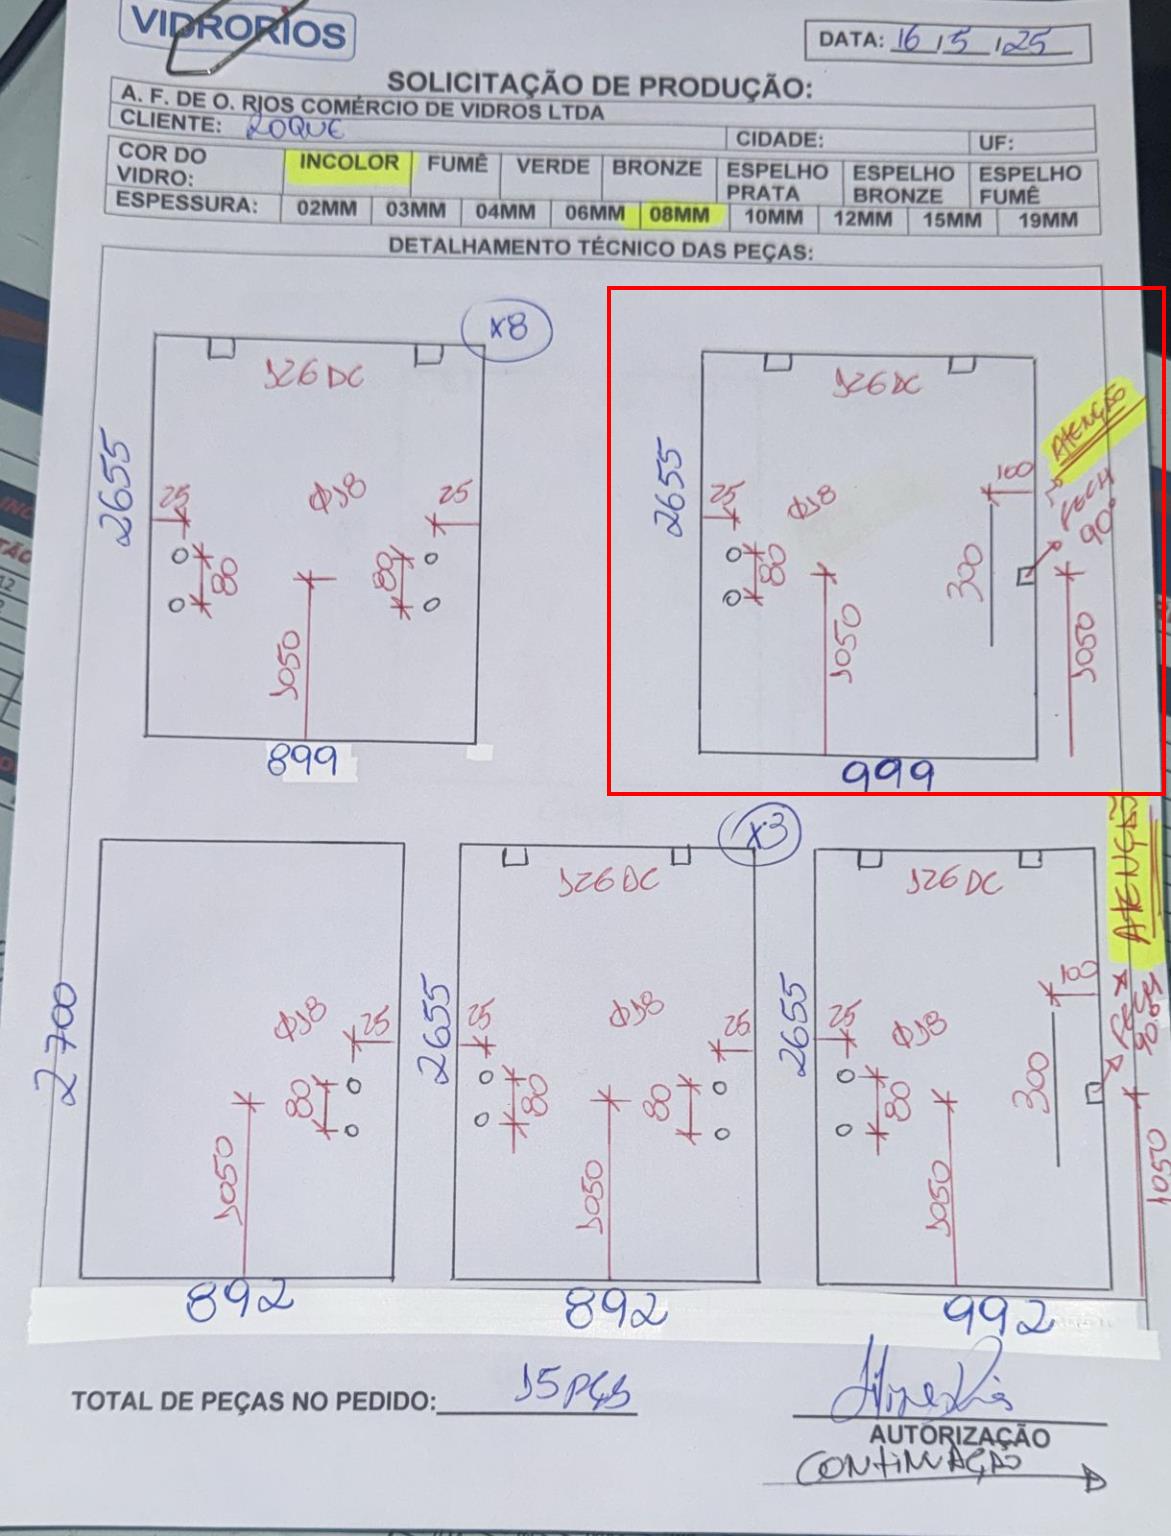 VIDRORIOS
DATA: 16 / 5 / 25
SOLICITAÇÃO DE PRODUÇÃO:
A. F. DE O. RIOS COMÉRCIO DE VIDROS LTDA
CLIENTE: ROQUE CIDADE: UF:
COR DO VIDRO: INCOLOR FUMÊ VERDE BRONZE ESPELHO PRATA ESPELHO BRONZE ESPELHO FUMÊ
ESPESSURA: 02MM 03MM 04MM 06MM 08MM 10MM 12MM 15MM 19MM
DETALHAMENTO TÉCNICO DAS PEÇAS:
x8
126 DC
2655
25
Φ18
25
80
80
1050
899
126 DC
ATENÇÃO
2655
25
Φ18
100
FECH
90°
80
300
1050
1050
999
2700
Φ18
25
80
1050
892
x3
126 DC
2655
25
Φ18
25
80
80
1050
892
ATENÇÃO
126 DC
2655
25
Φ18
100
FECH
90°
80
300
1050
1050
992
TOTAL DE PEÇAS NO PEDIDO: 15 PÇS
AUTORIZAÇÃO
CONTINUAÇÃO